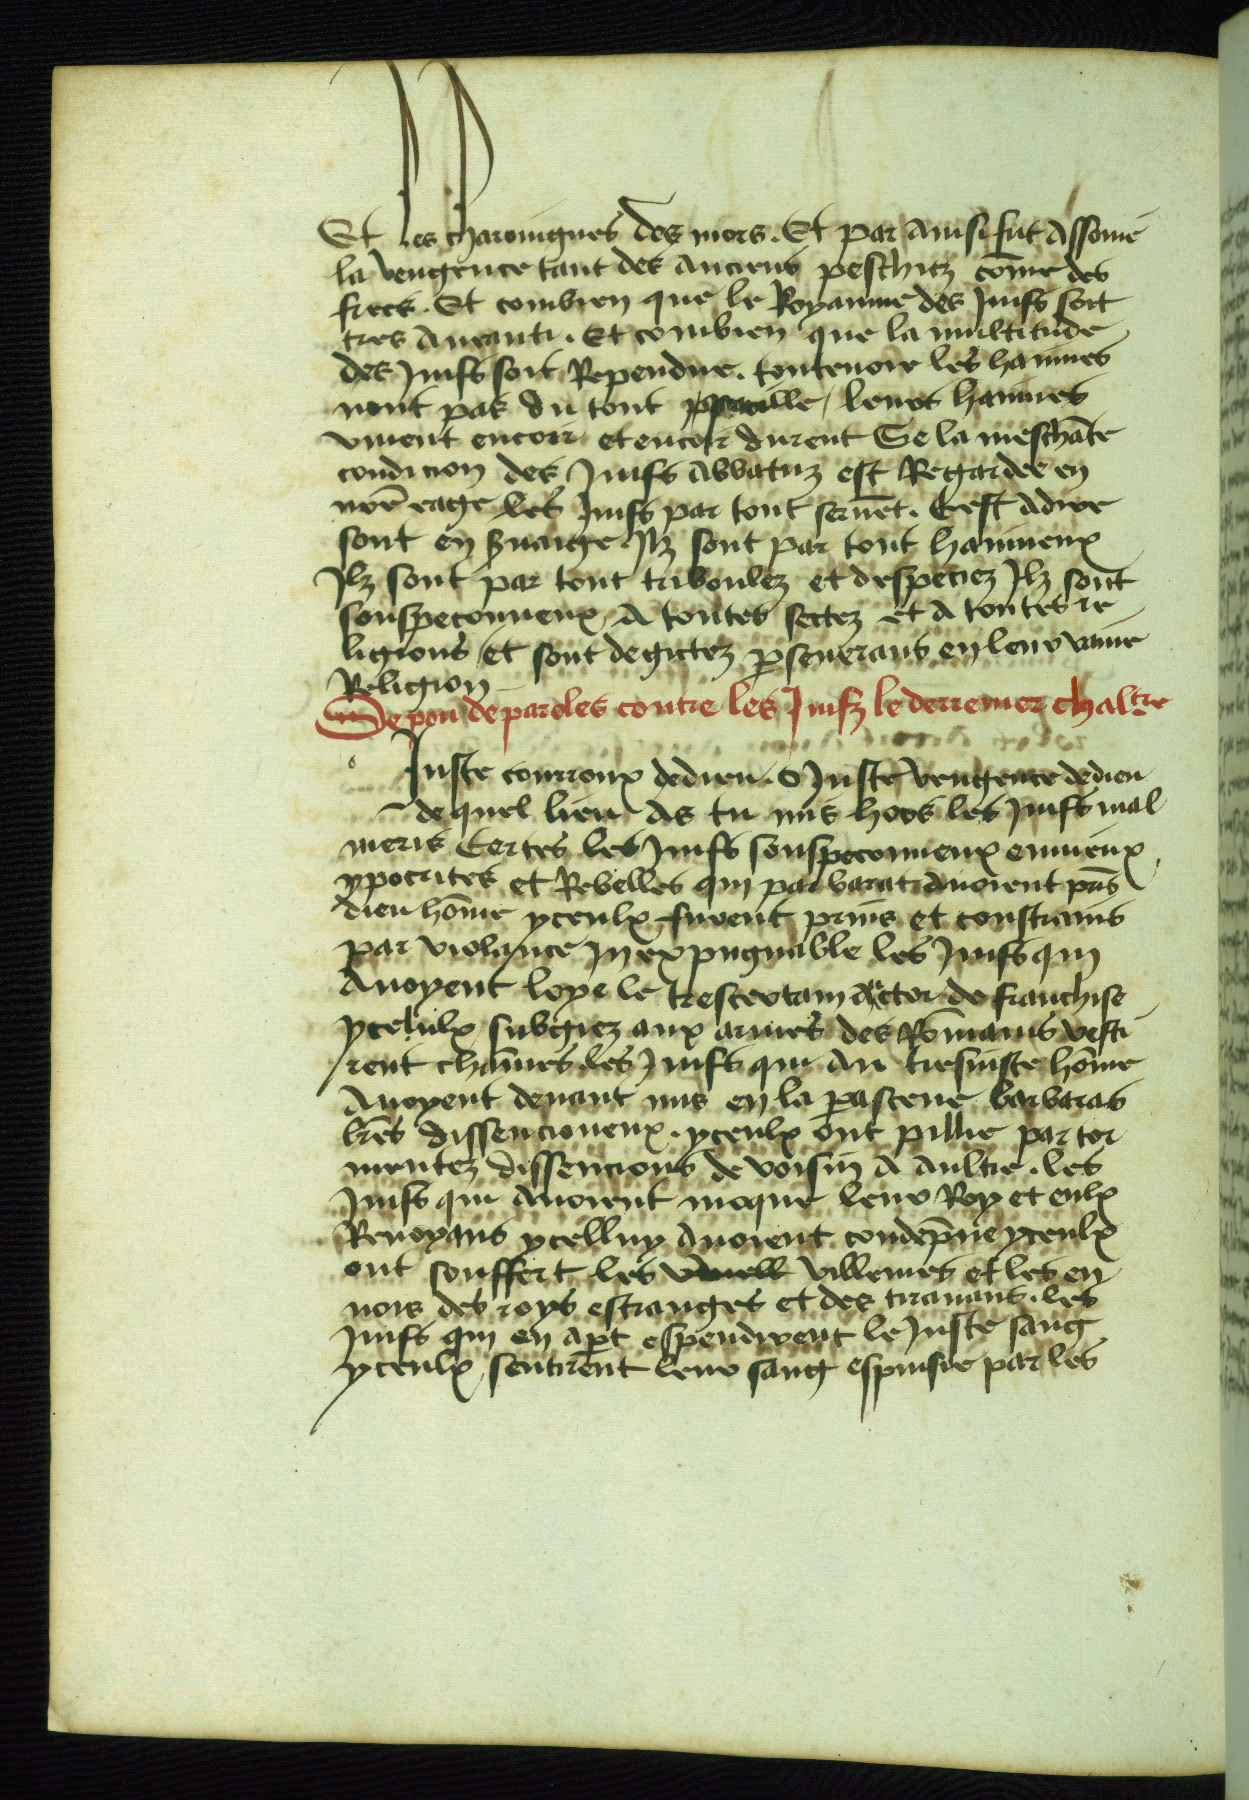 Et les charoingnes des mors. Et par ainsi fut assome
la vengence tant des anciens peschiez cōme des
frecs. Et combien que le Royaume des Juifs soit
tres aneanti. Et combien que la multitude
des Juifs soit Rependue. toutenoie les haunes
nont pas du tout leurs haunes
viuent encoir et encoir durent Se la meschāte
condicion des Juifs abbatuz est Regardee en
nrē eage les Juifs par tout seruēt. Cest adire
sont en seruaige Ilz sont par tout haineux
Ilz sont par tout triboulez et despeciez Ilz sont
souspeconneux a toutes sectez et a toutes re
ligions et sont degictez perseuerans en leur vaine
Religion
De pou de paroles contre les Juifz le derrenier chaltre
o Juste courroux de dieu. O Juste vengence de dieu
de quel lieu as tu mis hors les Juifs mal
meris Certes les Juifs souspeconneux enuieux
ypocrites et Rebelles qui par barat auoient pris
dieu hōme yceulx furent prins et constrains
par violance Inexpugnable les Juifs qui
auoyent loye le trescertain acter de franchise
yceulx subgiez aux armes des Rōmains vesti
rent chaines les Juifs qui au tresiuste hōme
auoyent deuant mis en la presence barbaras
lrēs dissencioneux. yceulx ont pillie par tor
mentez dissencions de voisin a aultre. les
Juifs qui auoient moque leur Roy et eulx
Renoyans ycelluy auoient condēpne yceulx
ont souffert les villenies et les en
nois des roys estranges et des tirauns. les
Juifs qui en apt espendirent le Juste sang
yceulx sentirent leur sang espuisie par les